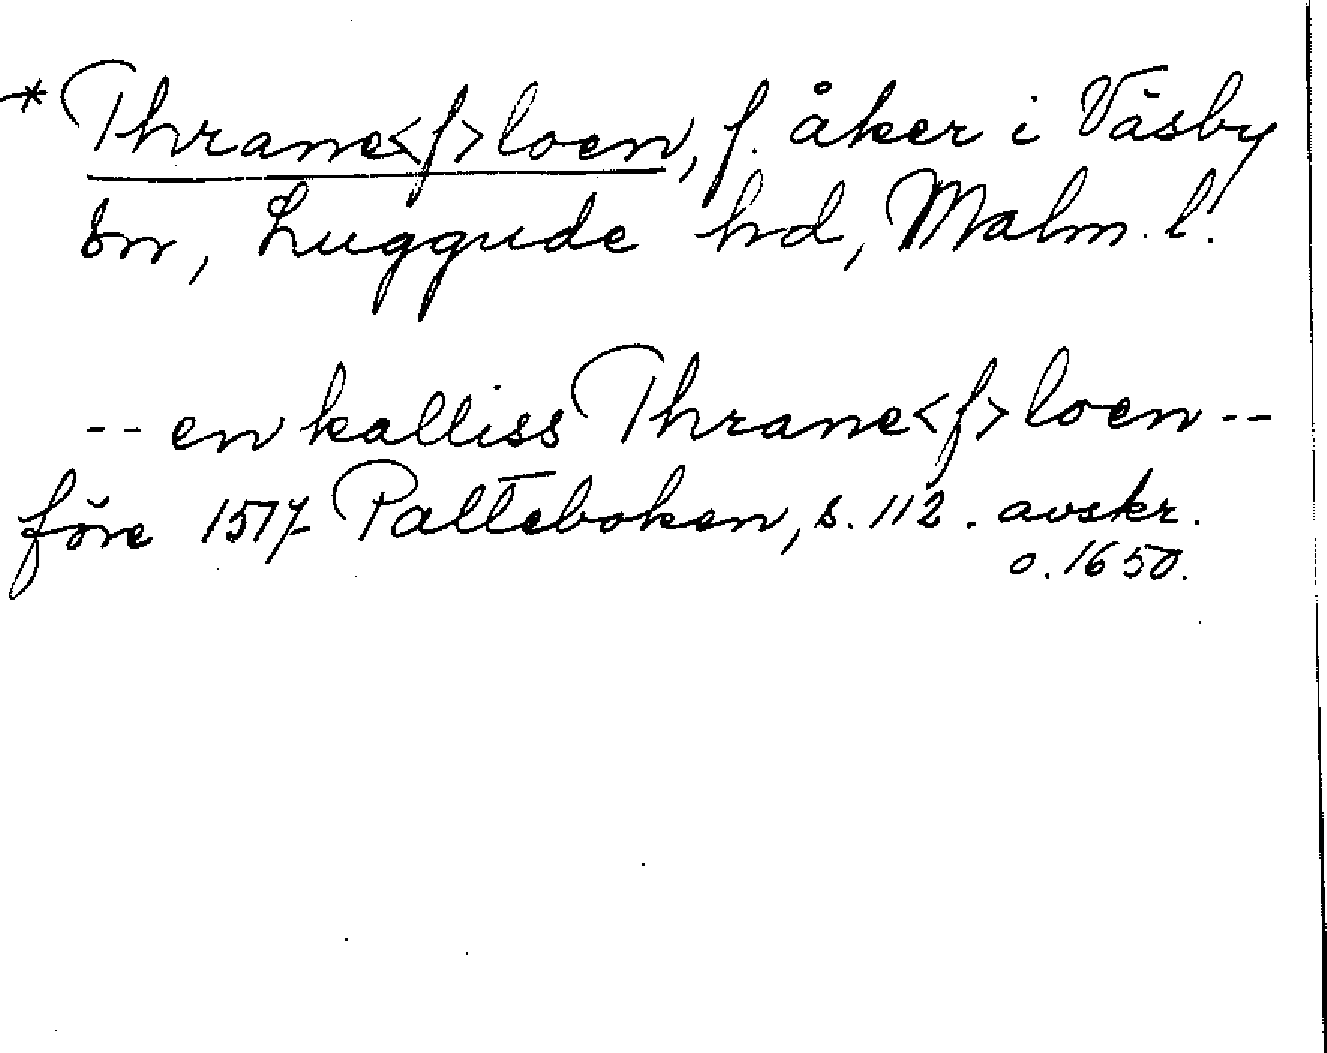 * Thrane<f>loen, f. åker i Väsby
sn, Luggude hd, Malm. l.
-- en kalliss Thrane<f>loen --
före 1517 Palteboken, s. 112. avskr.
o. 1650.